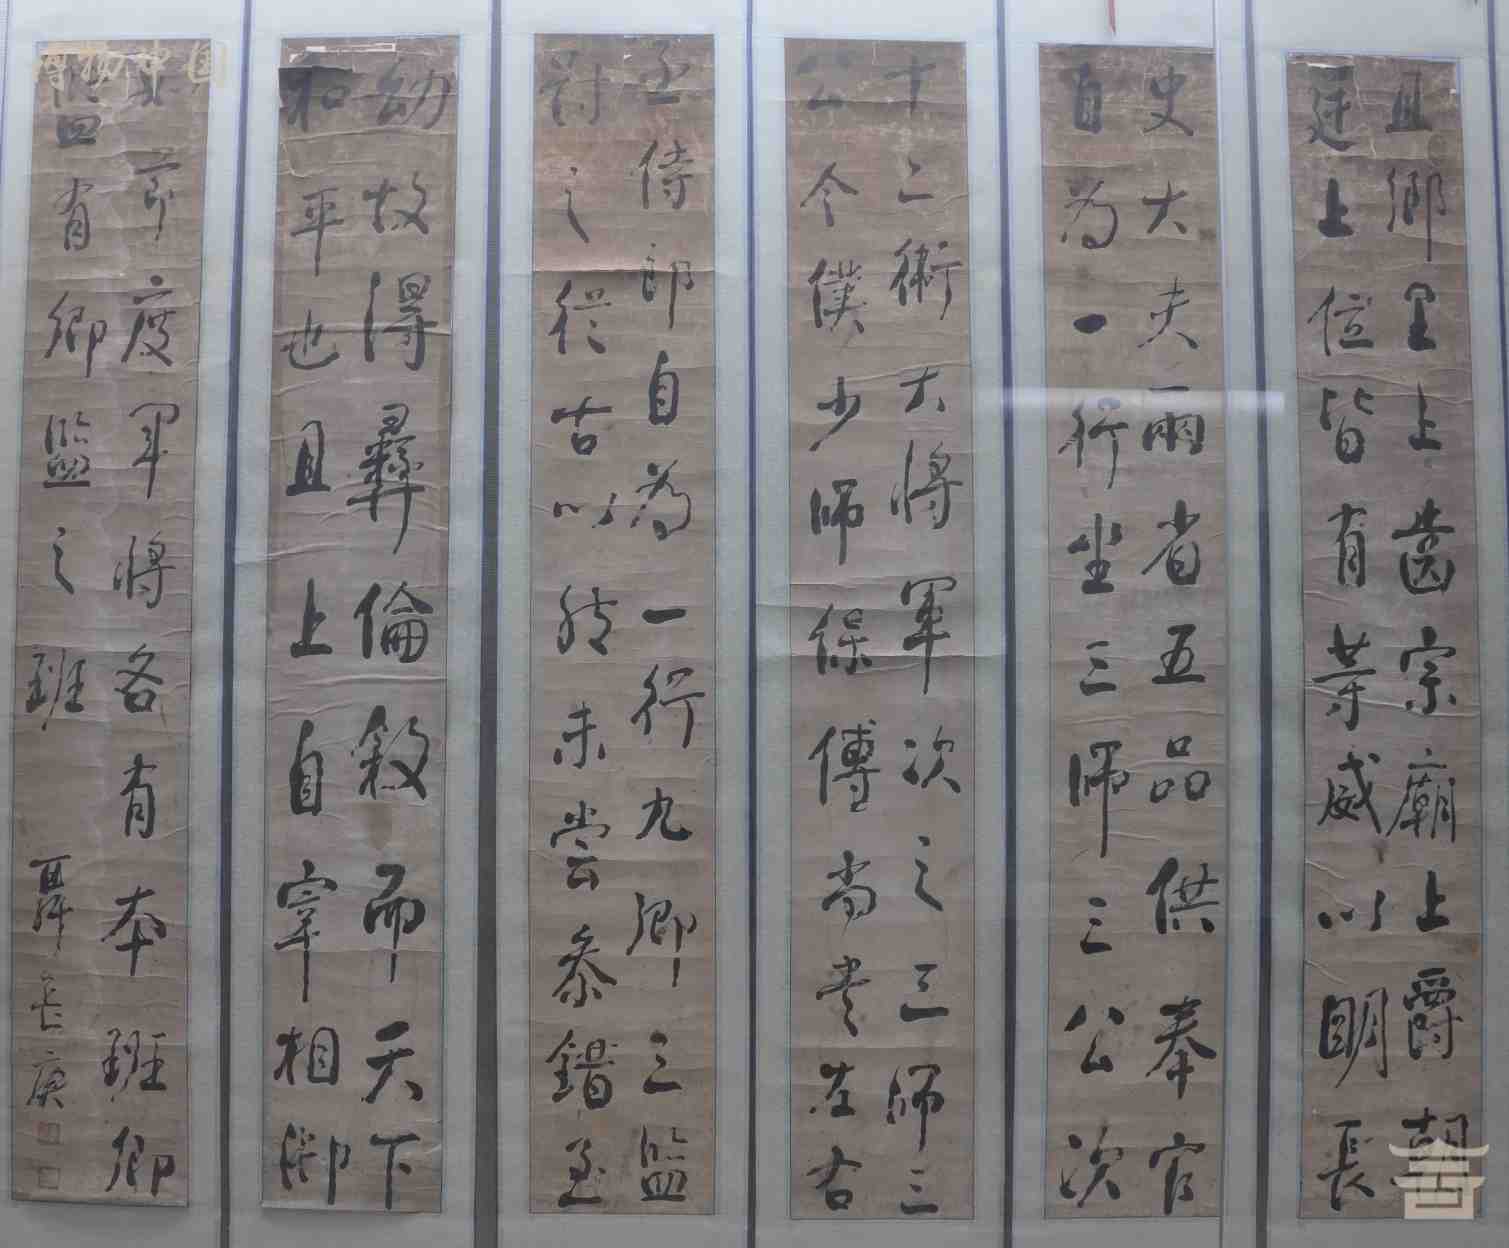 且鄉里上齒宗廟上爵朝
廷上位皆有等威以明長
史大夫兩省五品供奉官
自為一行坐三師三公次
十二衛大將軍次之三師三
公令僕少師保傅尚書左右
丞侍郎自為一行九卿三監
對之從古以然未嘗參錯至
幼故得彝倫敘而天下
和平也且上自宰相御
如節度軍將各有本班卿
監有卿監之班
長庚